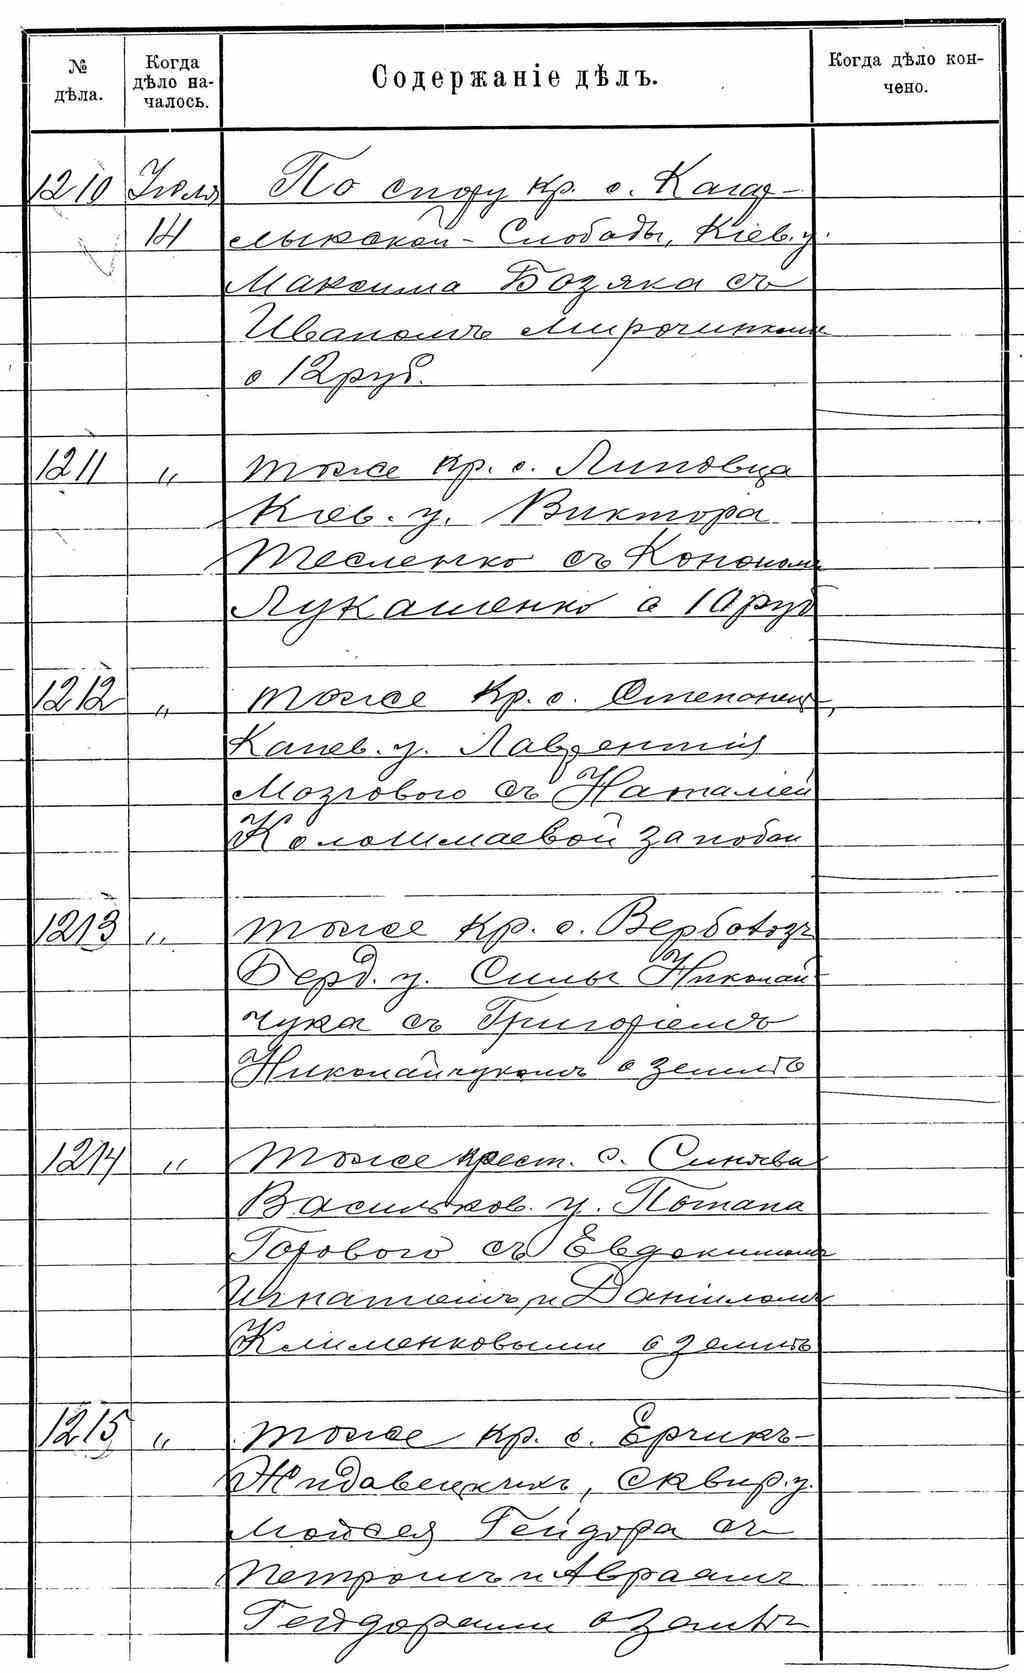 № дѣла.
Когда дѣло на-
чалось.
Содержаніе дѣлъ.
Когда дѣло кон-
чено.
1210 Іюля По спору кр. с. Кагар-
14 лыкской-Слободы, Кіев. у.
Максима Бозяка съ
Иваномъ Мирочникомъ
о 12 руб.
1211 " тоже кр. с. Липовца
Кіев. у. Виктора
Тесленко съ Кононом
Лукашенко о 10 руб
1212 " тоже Кр. с. Степанец,
Канев. у. Лаврентія
Мозгового съ Наталіей
Коломмаевой за побои
1213 " тоже Кр. с. Вербовозъ
Берд. у. Силы Николай-
чука съ Григоріемъ
Николайчукомъ о землѣ
1214 " тоже крест. с. Синява
Васильков. у. Потапа
Горового съ Евдокимомъ
Игнатіемъ и Даніиломъ
Клименковыми о землѣ
1215 " тоже кр. с. Ерчикъ-
Жидовецкихъ, Сквир. у.
Мойсея Гейдора съ
Петромъ и Авраамъ
Гейдорами о землѣ